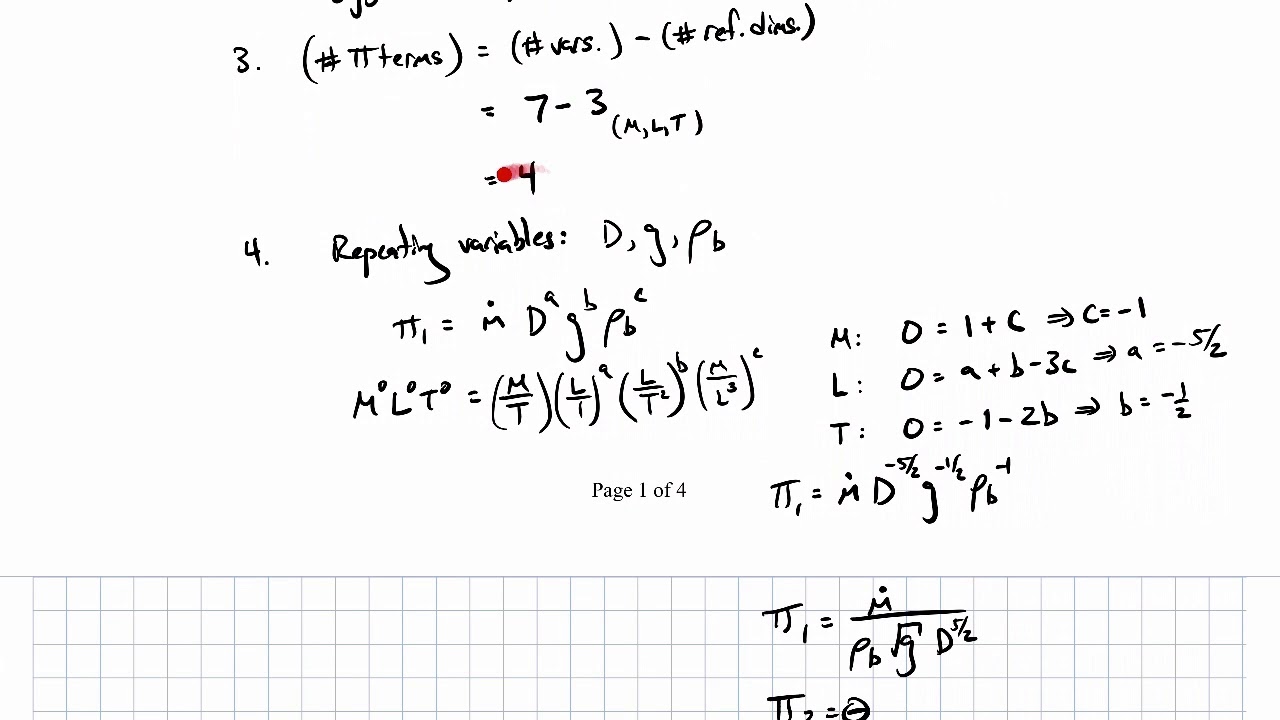 3. (# Π terms) = (# vars.) - (# ref. dims.)
= 7 - 3 (M, L, T)
= 4
4. Repeating variables: D, g, ρb
Π₁ = ṁ Dᵃ gᵇ ρbᶜ
M⁰L⁰T⁰ = (M/T)(L/1)ᵃ(L/T²)ᵇ(M/L³)ᶜ
M: 0 = 1 + c ⇒ c = -1
L: 0 = a + b - 3c ⇒ a = -5/2
T: 0 = -1 - 2b ⇒ b = -1/2
Π₁ = ṁ D^-5/2 g^-1/2 ρb^-1
Page 1 of 4
Π₁ = ṁ / (ρb √g D^5/2)
Π₂ = θ